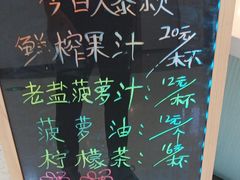 今日人泰
鲜榨果汁 20元/杯
老盐菠萝汁:12元/杯
菠萝油:12元/个
柠檬茶:16元/杯